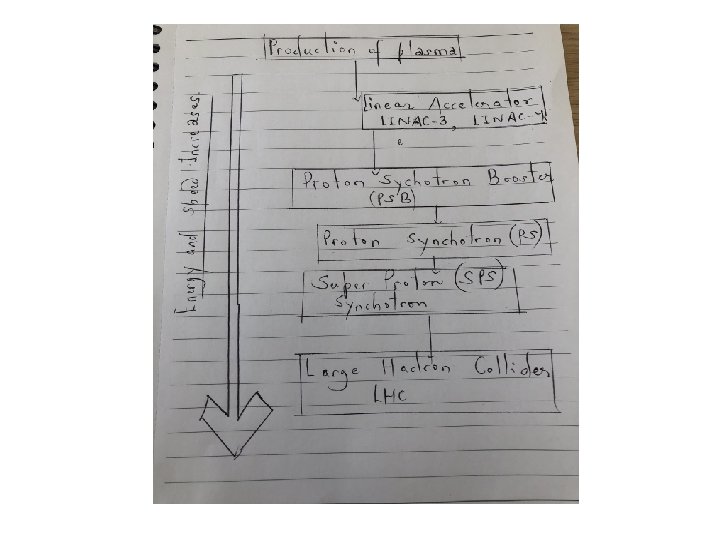 Production of plasma
Linear Accelerator
LINAC-3, LINAC-4
Proton Sychotron Booster
(PSB)
Proton Synchotron (PS)
Super Proton (SPS)
Synchotron
Large Hadron Collider
LHC
Energy and Speed Increases